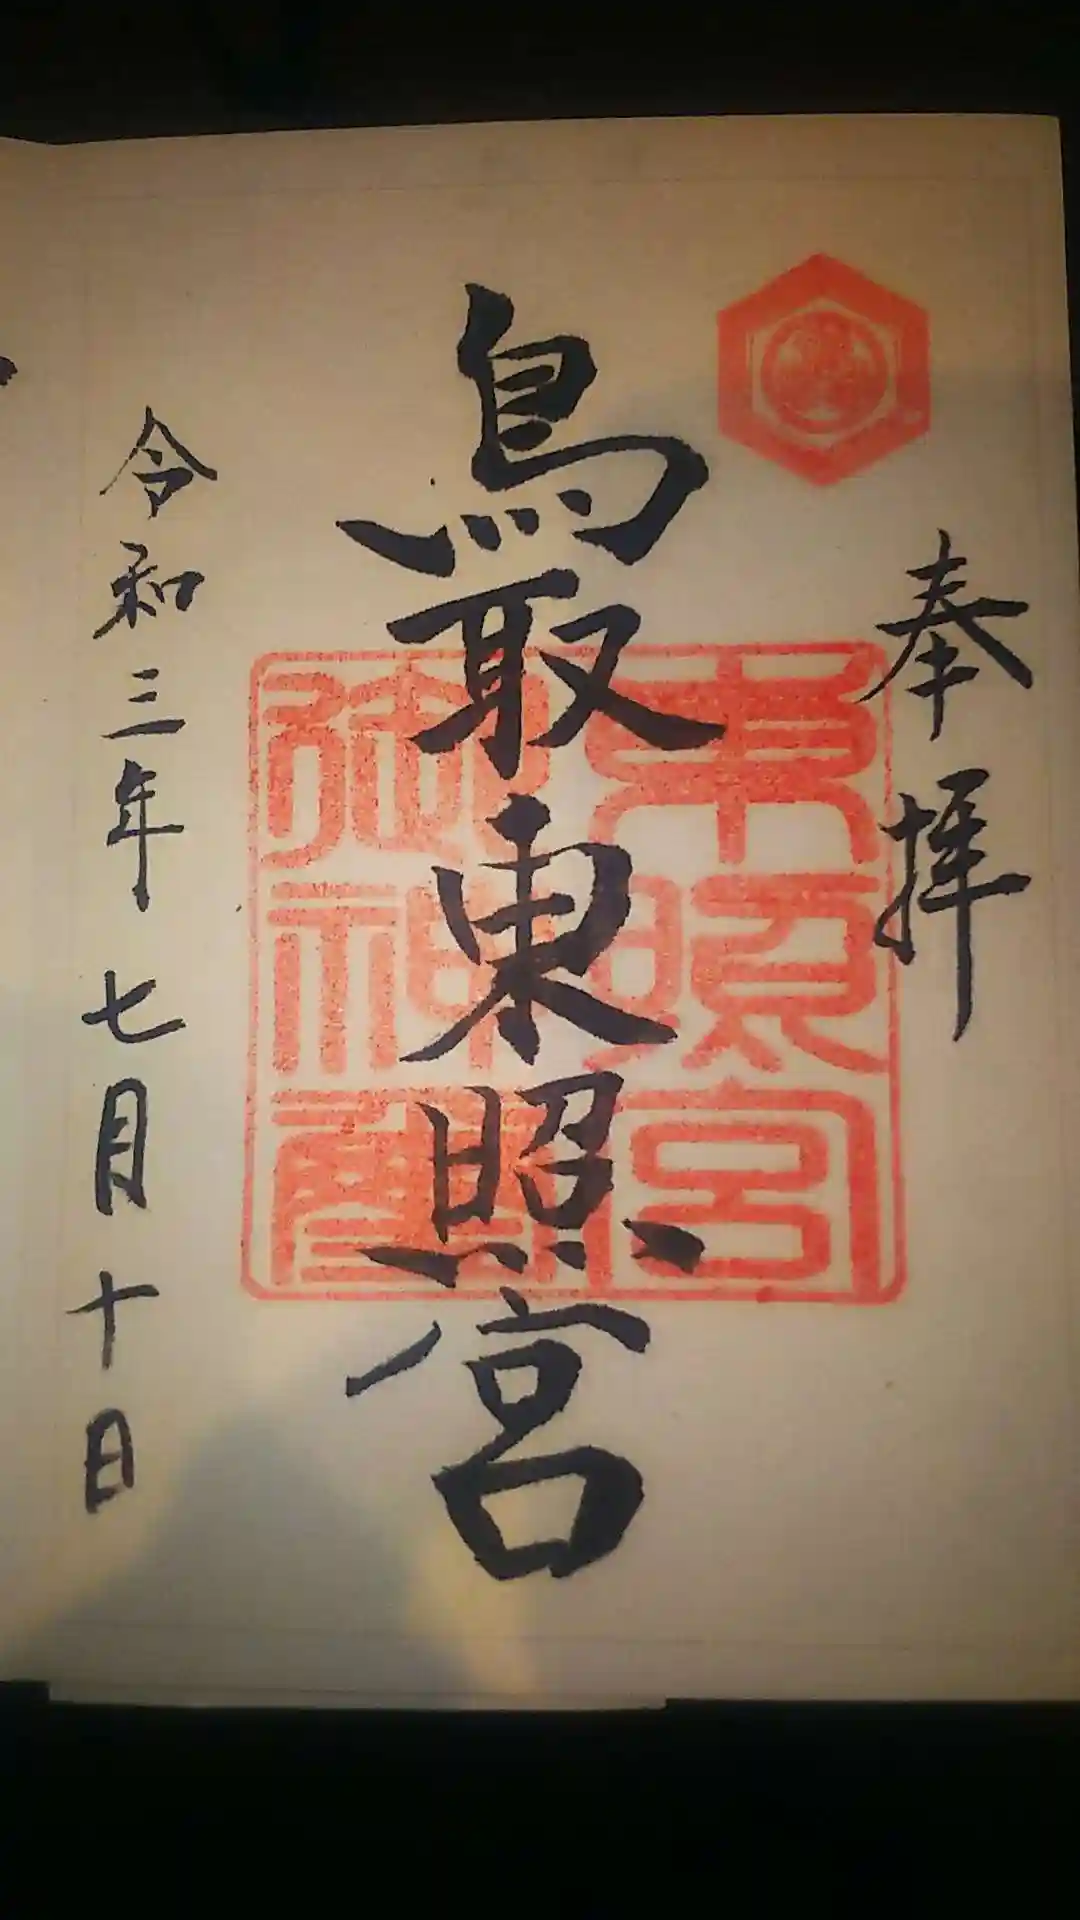 奉拝
鳥取東照宮
東照宮
御神璽
令和三年七月十日